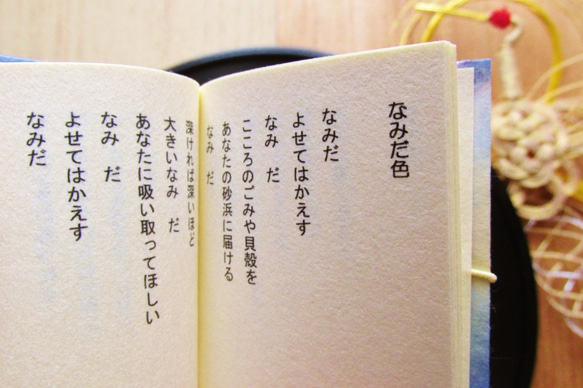 なみだ色
なみだ
よせてはかえす
なみ　だ
こころのごみや貝殻を
あなたの砂浜に届ける
なみ　だ
深ければ深いほど
大きいなみ　だ
あなたに吸い取ってほしい
なみ　だ
よせてはかえす
なみだ